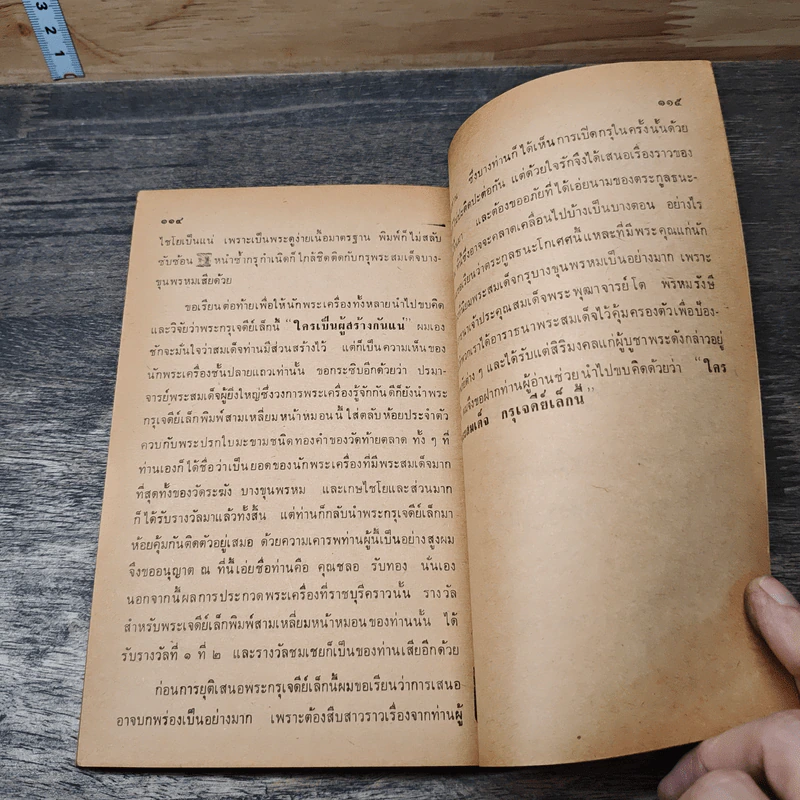 3
2
1
๑๑๔
ไชโยเป็นแน่ เพราะเป็นพระดูง่ายเนื้อมาตรฐาน พิมพ์ก็ไม่สลับ
ซับซ้อน หนำซ้ำกรุกำเนิดก็ใกล้ชิดติดกับกรุพระสมเด็จบาง-
ขุนพรหมเสียด้วย
ขอเรียนต่อท้ายเพื่อให้นักพระเครื่องทั้งหลายนำไปขบคิด
และวิจัยว่าพระกรุเจดีย์เล็กนี้ "ใครเป็นผู้สร้างกันแน่" ผมเอง
ชักจะมั่นใจว่าสมเด็จท่านมีส่วนสร้างไว้ แต่ก็เป็นความเห็นของ
นักพระเครื่องชั้นปลายแถวเท่านั้น ขอกระซิบอีกด้วยว่า ปรมา-
จารย์พระสมเด็จผู้ยิ่งใหญ่ซึ่งวงการพระเครื่องรู้จักกันดีก็ยังนำพระ
กรุเจดีย์เล็กพิมพ์สามเหลี่ยมหน้าหมอนนี้ ใส่ตลับห้อยประจำตัว
ควบกับพระปรกใบมะขามชนิดทองคำของวัดท้ายตลาด ทั้ง ๆ ที่
ท่านเองก็ได้ชื่อว่าเป็นยอดของนักพระเครื่องที่มีพระสมเด็จมาก
ที่สุดทั้งของวัดระฆัง บางขุนพรหม และเกษไชโยและส่วนมาก
ก็ได้รับรางวัลมาแล้วทั้งสิ้น แต่ท่านก็กลับนำพระกรุเจดีย์เล็กมา
ห้อยคุ้มกันติดตัวอยู่เสมอ ด้วยความเคารพท่านผู้นี้เป็นอย่างสูงผม
จึงขออนุญาต ณ ที่นี้เอ่ยชื่อท่านคือ คุณชลอ รับทอง นั่นเอง
นอกจากนี้ผลการประกวดพระเครื่องที่ราชบุรีคราวนั้น รางวัล
สำหรับพระเจดีย์เล็กพิมพ์สามเหลี่ยมหน้าหมอนของท่านนั้น ได้
รับรางวัลที่ ๑ ที่ ๒ และรางวัลชมเชยก็เป็นของท่านเสียอีกด้วย
ก่อนการยุติเสนอพระกรุเจดีย์เล็กนี้ผมขอเรียนว่าการเสนอ
อาจบกพร่องเป็นอย่างมาก เพราะต้องสืบสาวราวเรื่องจากท่านผู้
๑๑๕
ซึ่งบางท่านก็ได้เห็นการเปิดกรุในครั้งนั้นด้วย
ปะติดปะต่อกัน แต่ด้วยใจรักจึงได้เสนอเรื่องราวของ
และต้องขออภัยที่ได้เอ่ยนามของตระกูลธนะ-
ซึ่งอาจจะคลาดเคลื่อนไปบ้างเป็นบางตอน อย่างไร
เรียนว่าตระกูลธนะโกเศศนี้แหละที่มีพระคุณแก่นัก
นิยมพระสมเด็จกรุบางขุนพรหมเป็นอย่างมาก เพราะ
เจ้าประคุณสมเด็จพระพุฒาจารย์โต พรหมรังษี
พวกเราได้อาราธนาพระสมเด็จไว้คุ้มครองตัวเพื่อป้อง-
ต่าง ๆ และได้รับแต่สิริมงคลแก่ผู้บูชาพระดังกล่าวอยู่
จึงขอฝากท่านผู้อ่านช่วยนำไปขบคิดด้วยว่า "ใคร
สมเด็จ กรุเจดีย์เล็กนี้"